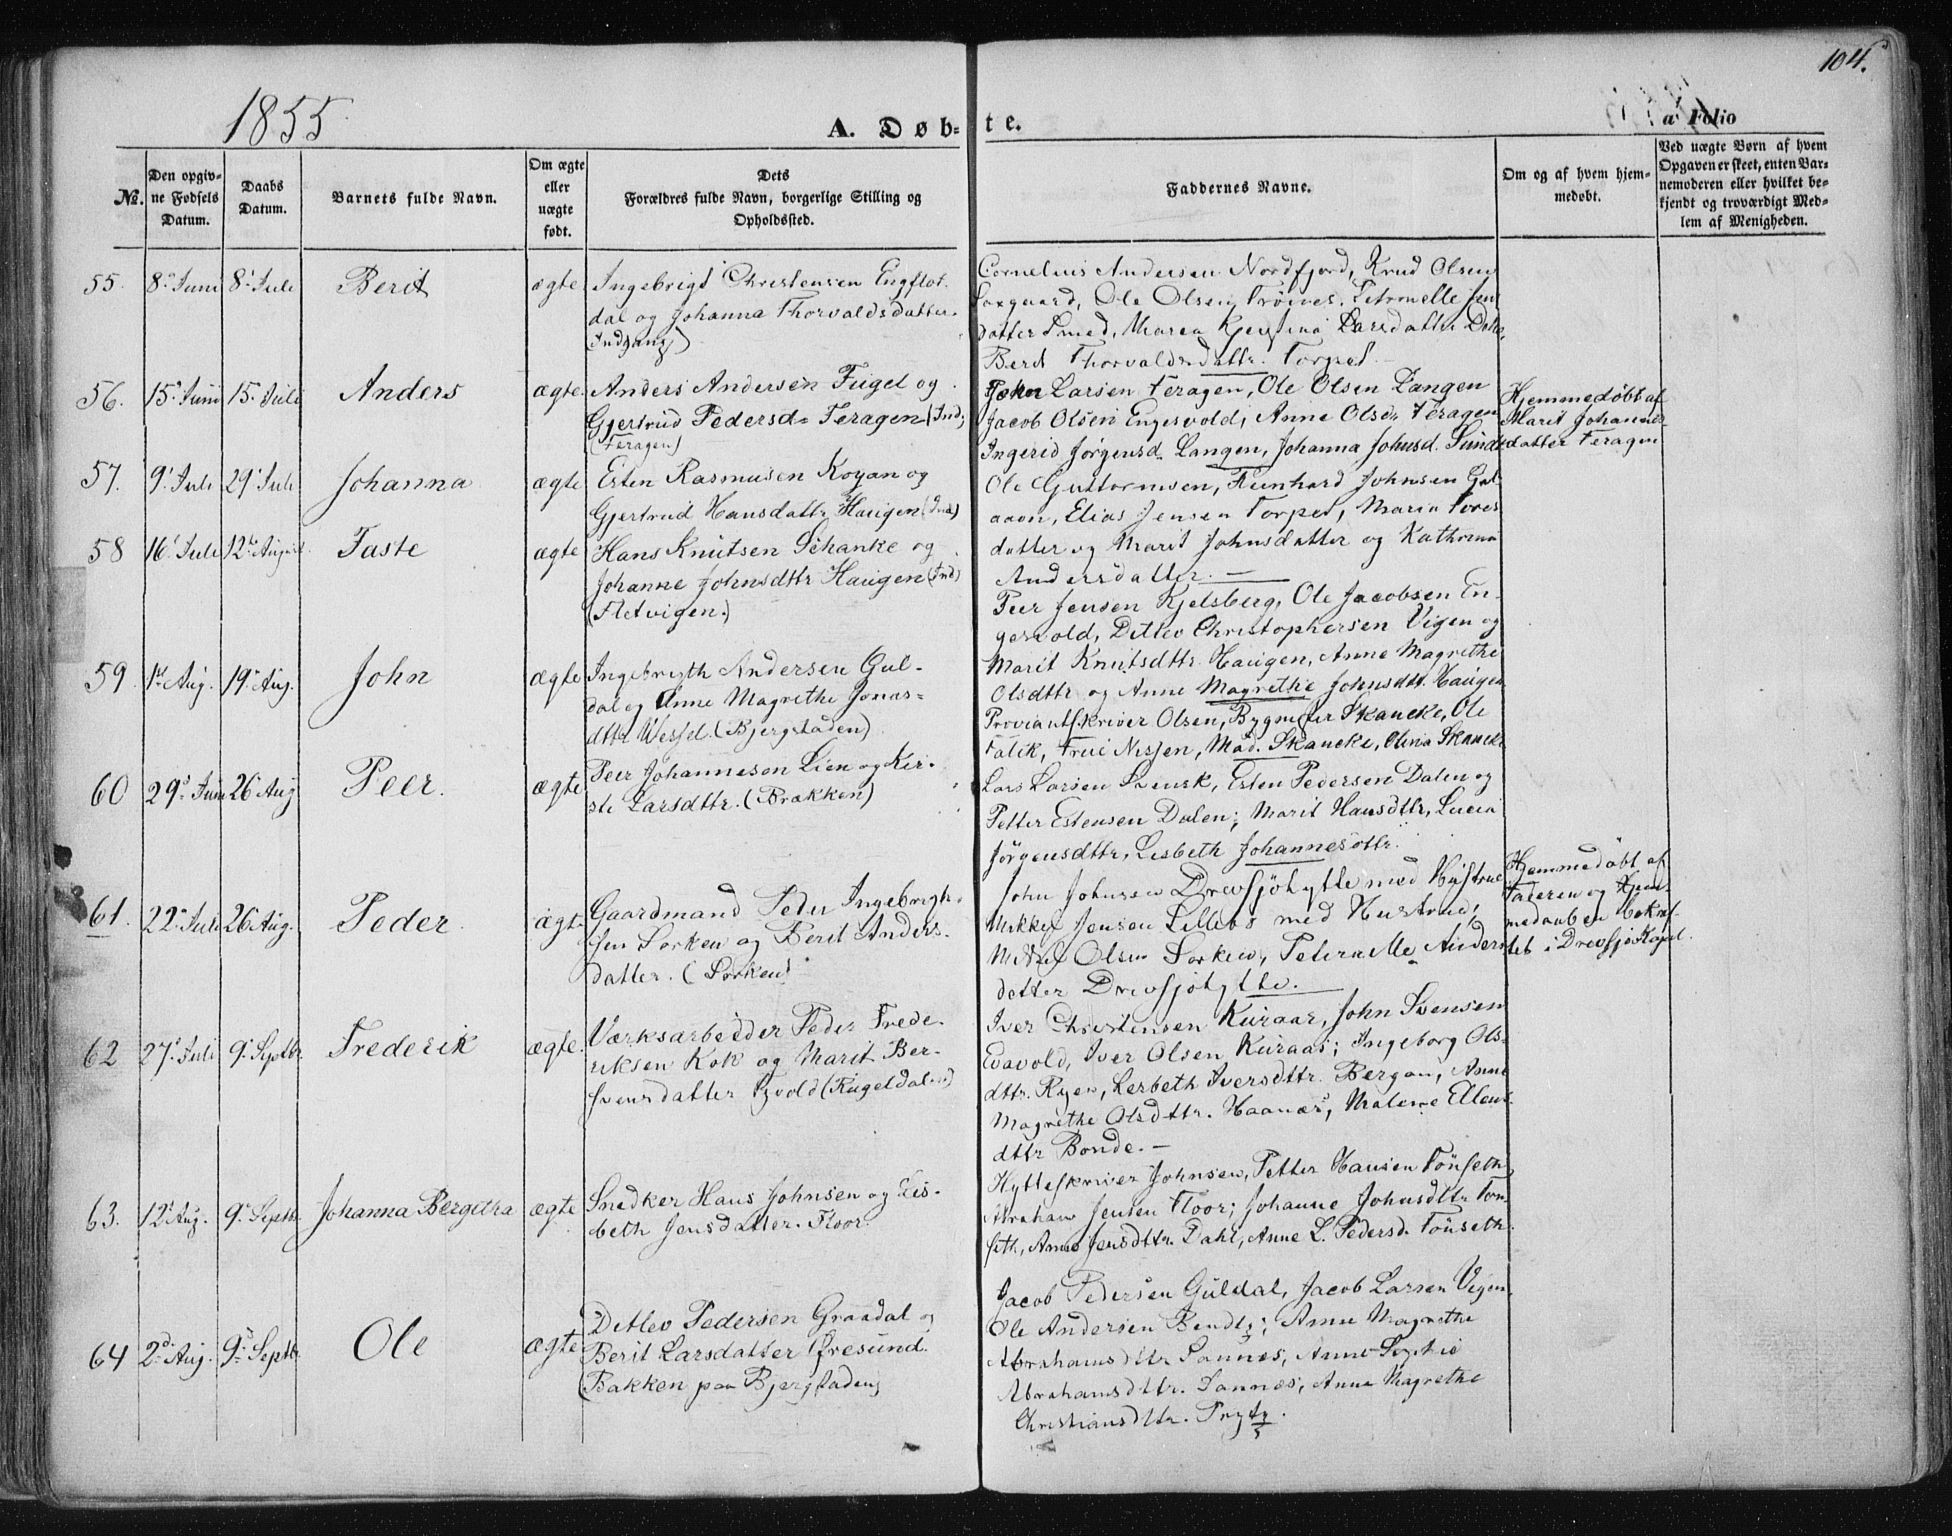 104.
1855
A. Døb-
te.
a Folio
No.
Den opgiv-
ne Fødsels
Datum.
Daabs
Datum.
Barnets fulde Navn.
Om ægte
eller
uægte
født.
Dets
Forældres fulde Navn, borgerlige Stilling og
Opholdssted.
Faddernes Navne.
Om og af hvem hjem-
medøbt.
Ved uægte Børn af hvem
Opgaven er skeet, enten Bar-
nemoderen eller hvilket be-
kjendt og troværdigt Med-
lem af Menigheden.
55. 8de Juni 8de Juli Berit ægte Ingebrigt Christensen Engflot-
dal og Johanna Thorvaldsdatter.
(Indgang)
Cornelius Andersen Nordfjord, Knud Olsen
Ole Olsen Petronelle Jens
datter Smed, Maren Larsdatter
Berit Thorvaldsdattr. Torpet.
56. 15de Juni 15de Juli Anders ægte. Anders Andersen Fugel og
Gjertrud Pedersd. Feragen (Ind;
Feragen)
John Larsen Feragen, Ole Olsen Langen
Jacob Olsen Engesvold, Anne Olsdr Feragen
Ingerid Jørgensd. Langen, Johanna Johnsd. Sundt
Hjemmedøbt af
Marit Johannes-
datter Feragen
57. 9de Juli 29de Juli Johanna ægte Esten Rasmusen Koyan og
Gjertrud Hansdattr Haugen (Ind)
Ole Guttormsen, Reinhard Johnsen Gul-
Elias Jensen Torpet, Maria Tores
datter og Marit Johnsdatter og Kathrina
Andersdatter.
58 16de Juli 12te August. Taste ægte Hans Knutsen Schanke og
Johanne Johnsdttr Haugen (Ind)
(Fletvigen.)
Peer Jensen Kjelsberg, Ole Jacobsen En-
gesvold, Ditlev Christophersen Vigen og
Marit Knutsdttr. Haugen, Anne Magrethe
Olsdttr og Anne Magrethe Johnsdttr. Haugen
59. 1ste Aug. 19de Aug. John ægte Ingebrigth Andersen Gul-
dal og Anne Magrethe Jonas-
dttr Wessel. (Bjergstaden)
Proviantskriver Olsen, Bygmester Skancke, Ole
Falik, Frue Nissen, Mad. Skancke, Olina Skancke
60 29de Juni 26de Aug Peer. ægte Peer Johannesen Lien og Kir-
ste Larsdttr. (Brækken)
Lars Larsen Svensk, Esten Pedersen Dalen og
Petter Estensen Dalen; Marit Hansdttr, Lucia
Jörgensdttr, Lisbeth Johannesdttr.
61. 22de Juli 26de Aug. Peder. ægte Gaardmand Peder Ingebrigt-
sen Sorken og Berit Anders-
datter. (Sorken)
John Johnsen Drevsjöhytte med Hustrue
Mikkel Jensen Lillebo med Hustrue,
Mikkel Olsen Sorken, Peternelle Anders
datter Drevsjöhytte.
Hjemmedöbt af
Faderen og Hjem-
medaaben bekræf-
tet i Drevsjö Kapel.
62 27de Juli 9de Septbr. Frederik ægte. Værksarbeidder Peder Frede-
riksen Kok og Marit Ber-
svensdatter Ryvold (Rugeldalen)
Iver Christensen Kuraas, John Svensen
Evavold, Iver Olsen Kuraas; Ingeborg Ols-
dttr. Ryen, Lisbeth Iversdttr. Bergan, Anne
Magrethe Olsdttr. Haanæs, Malene Ellens-
dttr Bonde.
63. 12te Aug. 9de Septbr. Johanna Bergitha ægte Snedker Hans Johnsen og Lis-
beth Jensdatter. Floor.
Hytteskriver Johnsen, Petter Hansen Tönseth
Abraham Jensen Floor; Johanne Johnsdttr Tön-
seth, Anne Jensdttr. Dahl, Anne L. Pedersd. Tönseth.
64 2den Aug. 9de Septbr. Ole ægte Ditlev Pedersen Graadal og
Berit Larsdatter Øresund.
(Bakken paa Bjergstaden)
Jacob Pedersen Guldal, Jacob Larsen Vigen,
Ole Andersen Bendtz; Anne Magrethe
Abrahamsdttr Sannes, Anne Sophie
Abrahamsdttr. Sannæs, Anne Magrethe
Christiansdttr. Prytz.